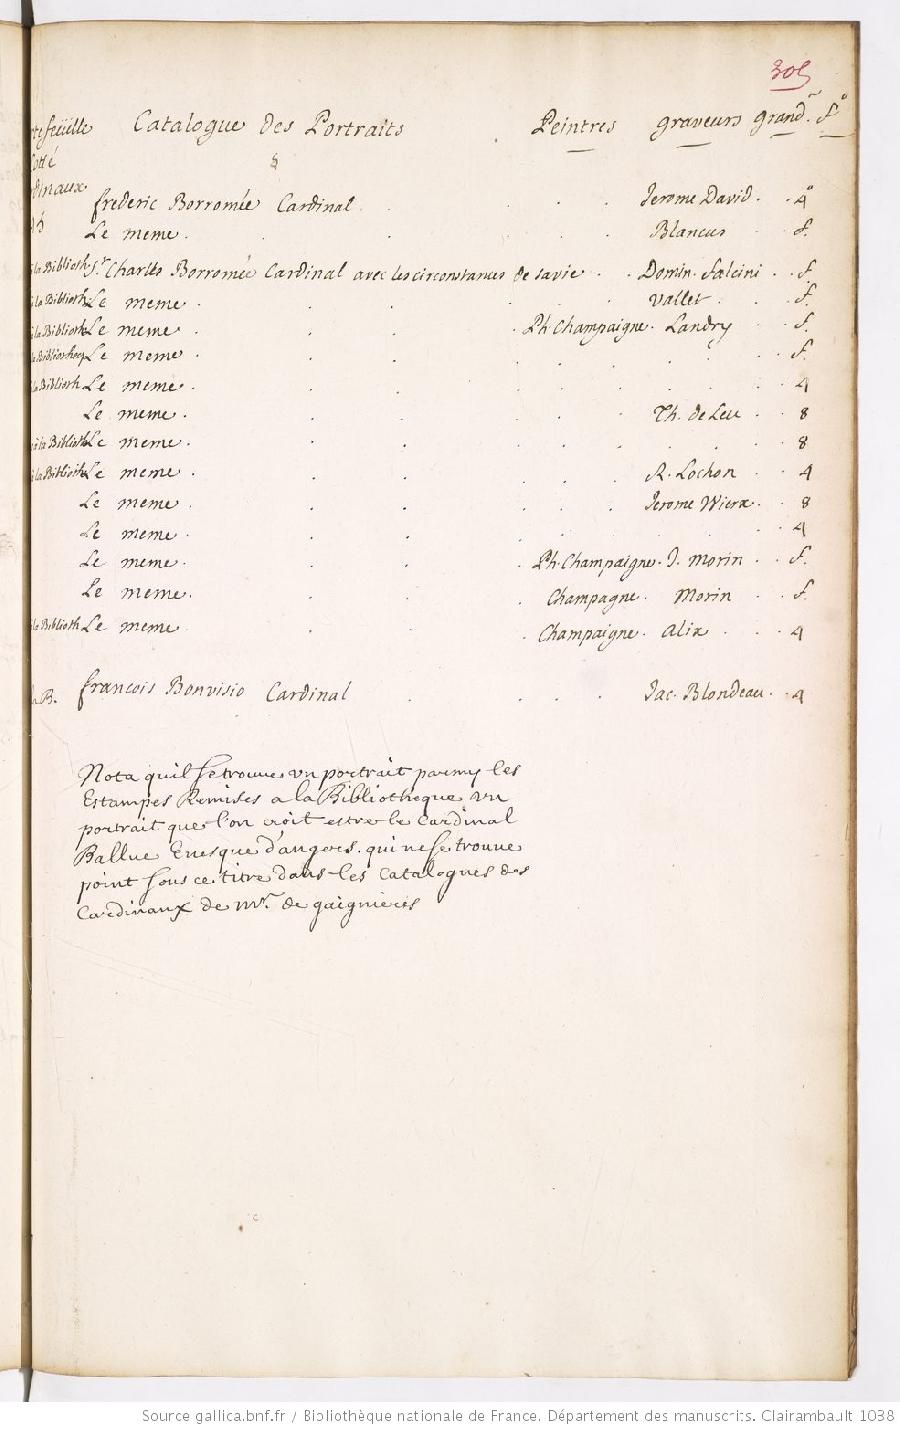 305
tefeüille Catalogue des Portraits Peintres graveurs grandr. fo
Cotté
dinaux
frederic Borromée Cardinal . . . Jerome David . . 4o
Le meme . . . . . Blancus . f.
a la Biblioth St. Charles Borromée Cardinal avec les circonstances de sa vie . . Domin. Falcini . . f.
a la Biblioth Le meme . . . . . Vallet . . f.
a la Biblioth Le meme . . . . Ph Champaigne . Landry . f.
a la Bibliotheq Le meme . . . . . . . f.
a la Biblioth Le meme . . . . . . . 4
Le meme . . . . . Th. de Leu . . 8
a la Biblioth Le meme . . . . . . . 8
a la Biblioth Le meme . . . . . R. Lochon . . 4
Le meme . . . . . Jerome Wierx . . 8
Le meme . . . . . . . 4
Le meme . . . Ph. Champaigne . J. Morin . . f.
Le meme . . . Champagne . Morin . . f.
a la Biblioth Le meme . . . Champaigne . Alix . . . 4
la B. francois Bonvisio Cardinal . . . . Jac. Blondeau . . 4
Nota quil se trouve un portrait parmy les
Estampes Remises a la Bibliotheque un
portrait que l'on croit estre le Cardinal
Ballue Evesque d'angers. qui ne se trouve
point sous ce titre dans les Catalogues des
Cardinaux de Mr. de gaignieres
Source gallica.bnf.fr / Bibliothèque nationale de France. Département des manuscrits. Clairambault 1038